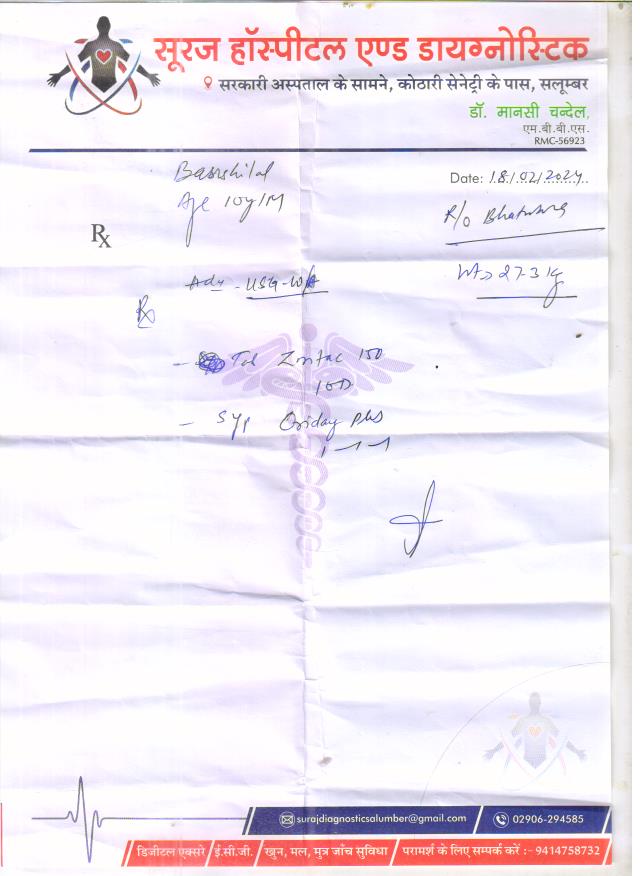 सूरज हॉस्पीटल एण्ड डायग्नोस्टिक
सरकारी अस्पताल के सामने, कोठारी सेनेट्री के पास, सलूम्बर
डॉ. मानसी चन्देल,
एम.बी.बी.एस.
RMC-56923
Date: 18/02/2024
Age 10y/M
R/o
Rx
Adv - USG-W/A
Wt 27.3 kg
Rx
- Zintac 150
1OD
- Syp Oriday Plus
1-1-1
surajdiagnosticsalumber@gmail.com
02906-294585
डिजीटल एक्सरे / ई.सी.जी. / खुन, मल, मुत्र जाँच सुविधा / परामर्श के लिए सम्पर्क करें :- 9414758732